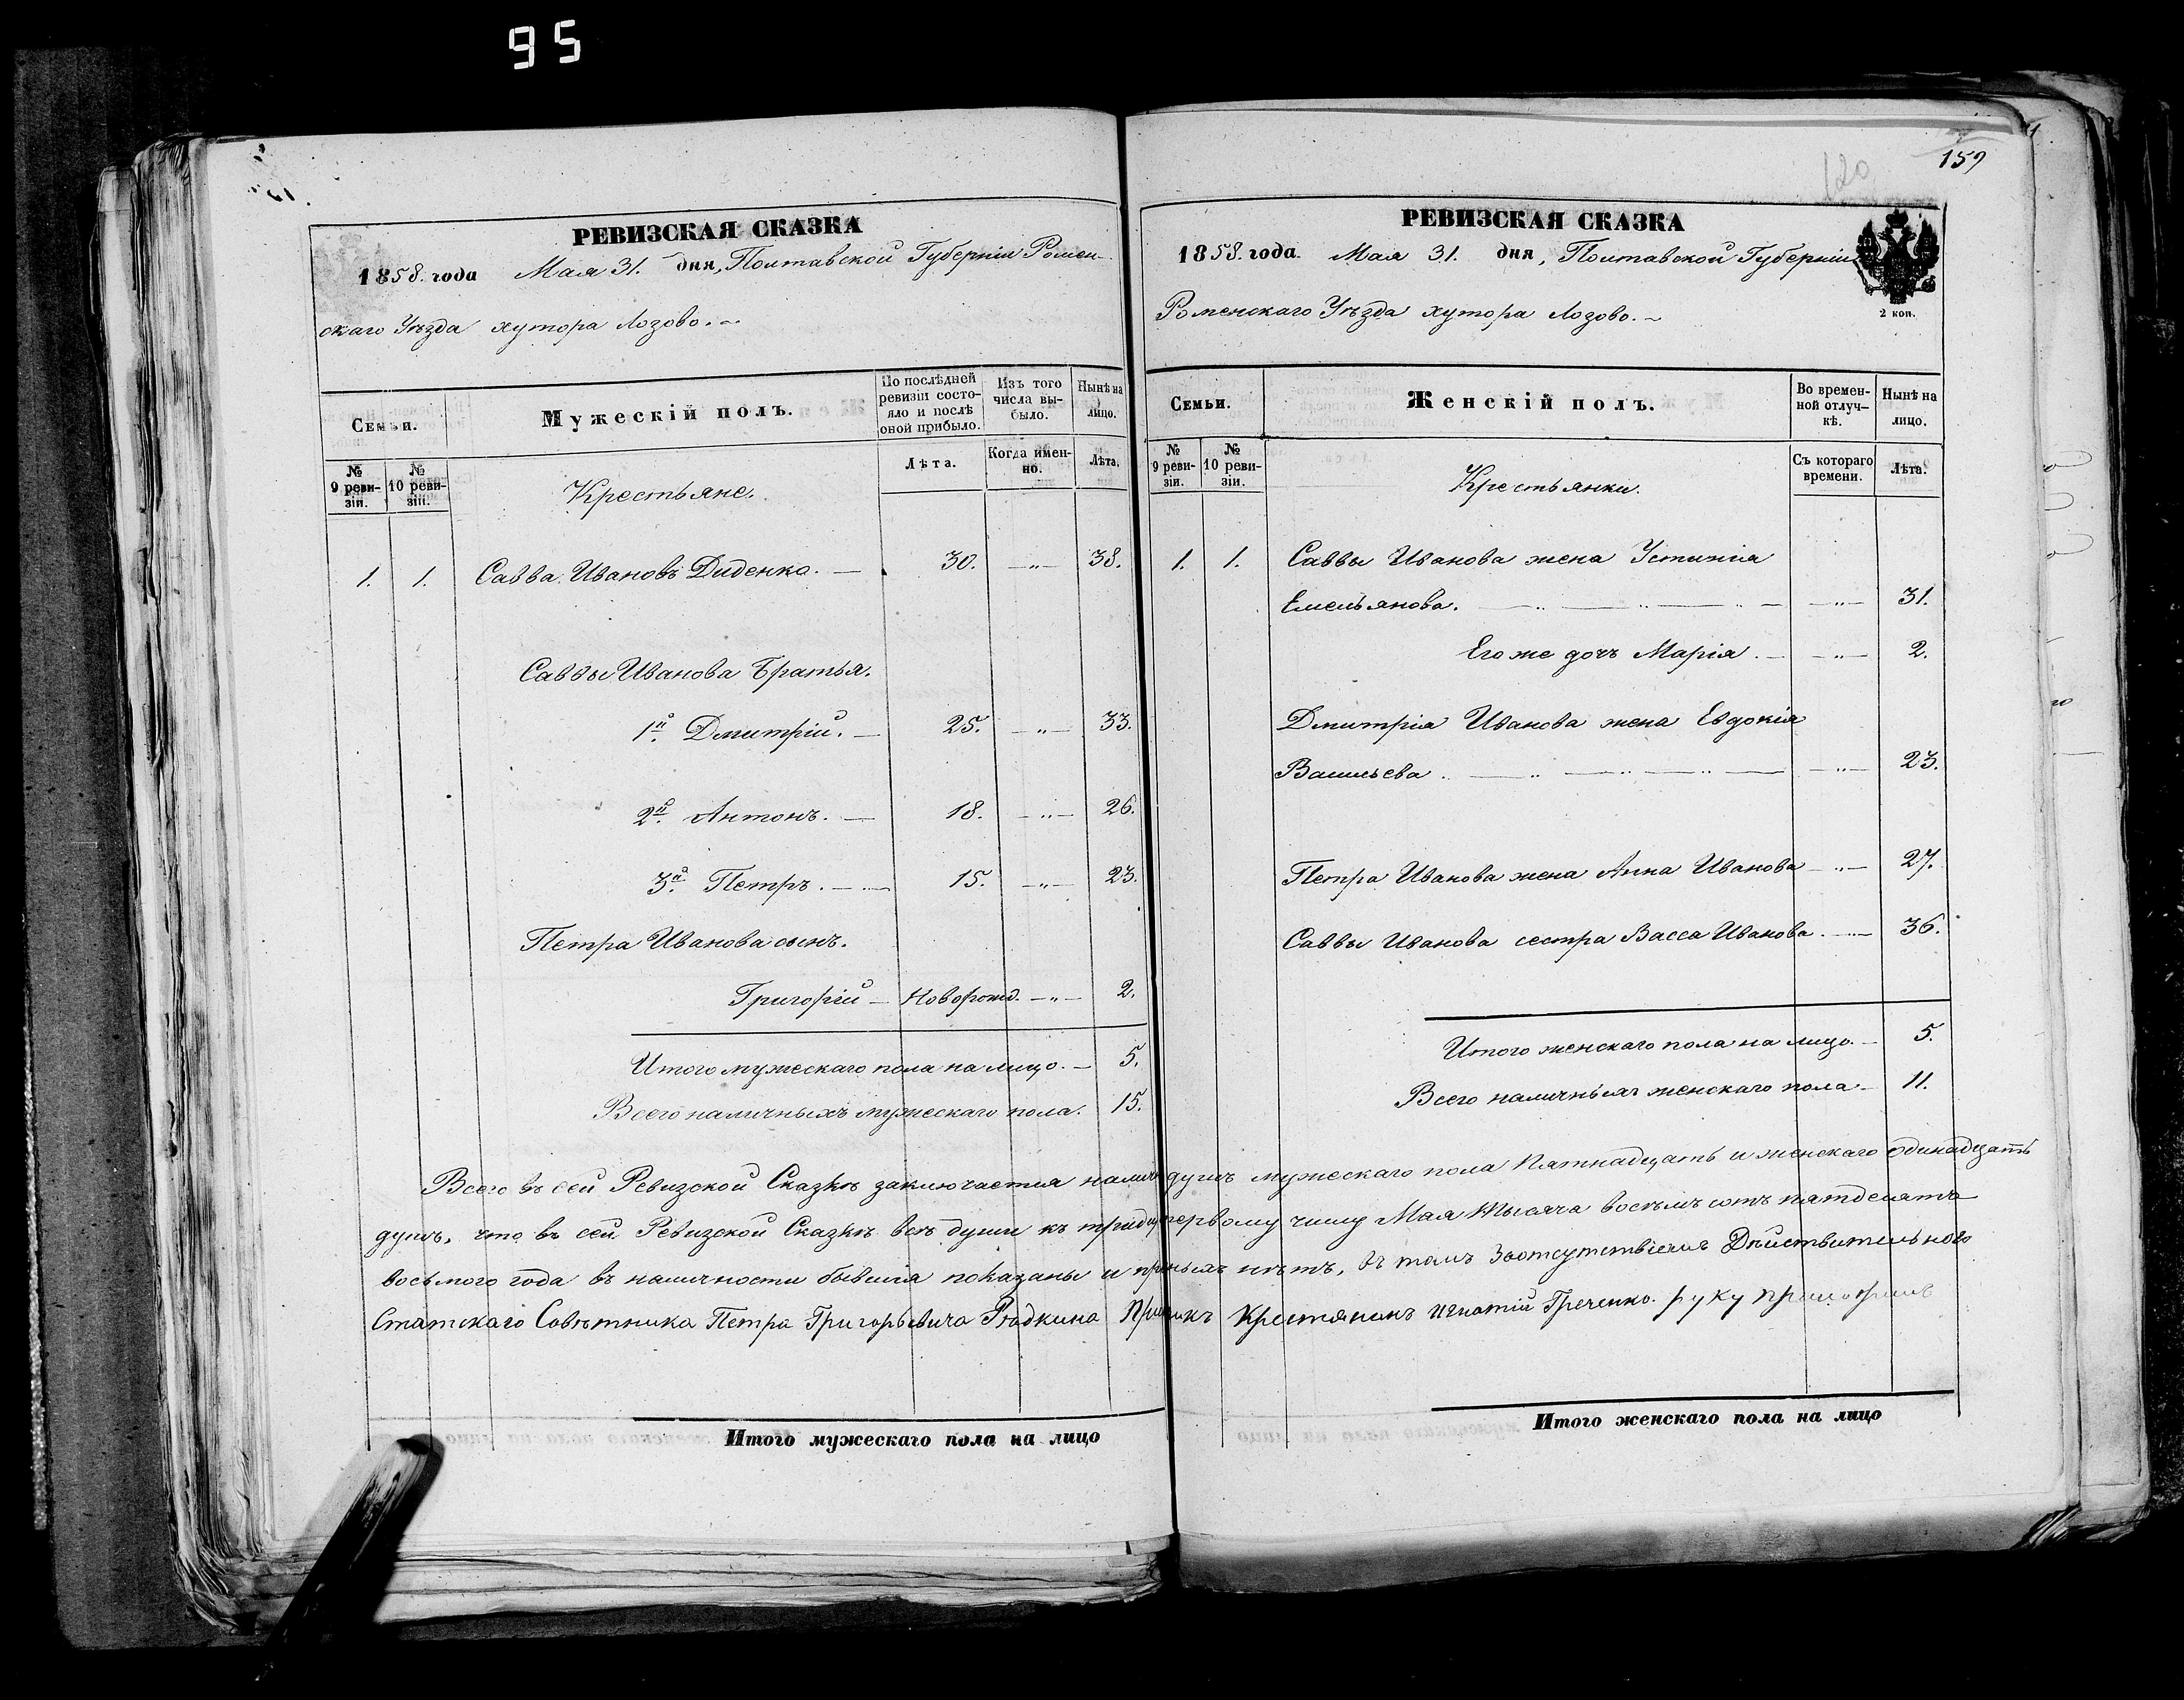 95
РЕВИЗСКАЯ СКАЗКА
1858. года Мая 31. дня, Полтавской Губерніи Ромен-
скаго Уѣзда хутора Лозово.
Семьи.
Мужескій полъ.
По послѣдней ревизіи состояло и послѣ оной прибыло.
Изъ того числа выбыло.
Нынѣ на лицо.
№ 9 ревизіи.
№ 10 ревизіи.
Крестьяне.
Лѣта.
Когда именно.
Лѣта.
1. 1. Савва Ивановъ Диденко. — 30. —„— 38.
Саввы Иванова Братья.
1й. Дмитрій. — 25. —„— 33.
2й. Антонъ. — 18. —„— 26.
3й. Петръ. — 15. —„— 23.
Петра Иванова сынъ.
Григорій — Новорожд. —„— 2.
Итого мужескаго пола на лицо. — 5.
Всего наличныхъ мужескаго пола. 15.
159
120
РЕВИЗСКАЯ СКАЗКА
1858. года. Мая 31. дня, Полтавской Губерніи
Роменскаго Уѣзда хутора Лозово.
2 коп.
Семьи.
Женскій полъ.
Во временной отлучкѣ.
Нынѣ на лицо.
№ 9 ревизіи.
№ 10 ревизіи.
Крестьянки.
Съ котораго времени.
Лѣта.
1. 1. Саввы Иванова жена Устинія
Емельянова. —„— 31.
Его же дочь Марія. — —„— 2.
Дмитрія Иванова жена Евдокія
Васильева. —„— 23.
Петра Иванова жена Анна Иванова —„— 27.
Саввы Иванова сестра Васса Иванова. —„— 36.
Итого женскаго пола на лицо. — 5.
Всего наличныхъ женскаго пола. — 11.
Всего въ сей Ревизской Сказкѣ заключается душъ мужескаго пола Пятнадцать и женскаго одинадцать
душъ, что въ сей Ревизской Сказкѣ всѣ души къ первому числу Мая тысяча восемъ сотъ пятдесятъ
восьмого года въ наличности бывшія показаны и нѣтъ, въ томъ Заотсутствіемъ Дѣйствительново
Статскаго Совѣтника Петра Григорьевича Рѣдкина Крестянинъ Игнатій Греченко. руку приложилъ
Итого мужескаго пола на лицо
Итого женскаго пола на лицо